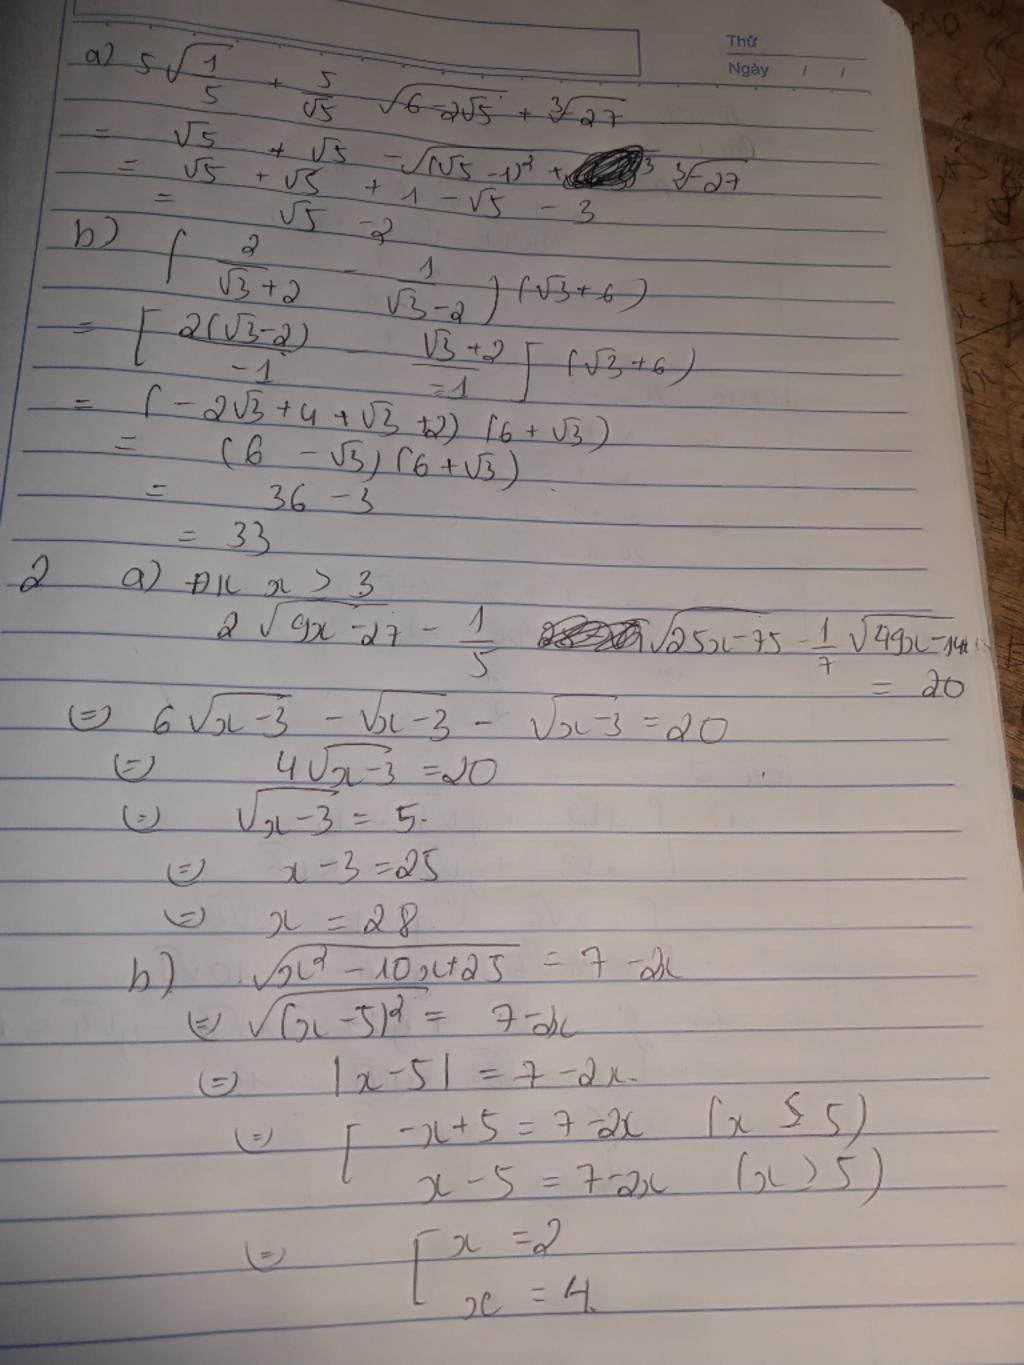 Thứ
Ngày / /
a) 5√(1/5) + 5/√5 √(6-2√5) + ∛-27
= √5 + √5 - √(√5 -1)² + ³ ∛-27
= √5 + √5 + 1 - √5 - 3
= √5 - 2
b) (2/(√3+2) - 1/(√3-2)) (√3+6)
= [2(√3-2)/-1 - (√3+2)/-1] (√3+6)
= (-2√3+4+√3+2) (6+√3)
= (6 - √3) (6+√3)
= 36 - 3
= 33
2 a) ĐK x > 3
2√(9x-27) - 1/5 √(25x-75) - 1/7 √(49x-147)
= 20
(=) 6√(x-3) - √(x-3) - √(x-3) = 20
(=) 4√(x-3) = 20
(=) √(x-3) = 5.
(=) x-3 = 25
(=) x = 28
b) √(x²-10x+25) = 7-2x
(=) √(x-5)² = 7-2x
(=) |x-5| = 7-2x.
(=) [ -x+5 = 7-2x (x ≤ 5)
x-5 = 7-2x (x > 5)
(=) [ x = 2
x = 4.